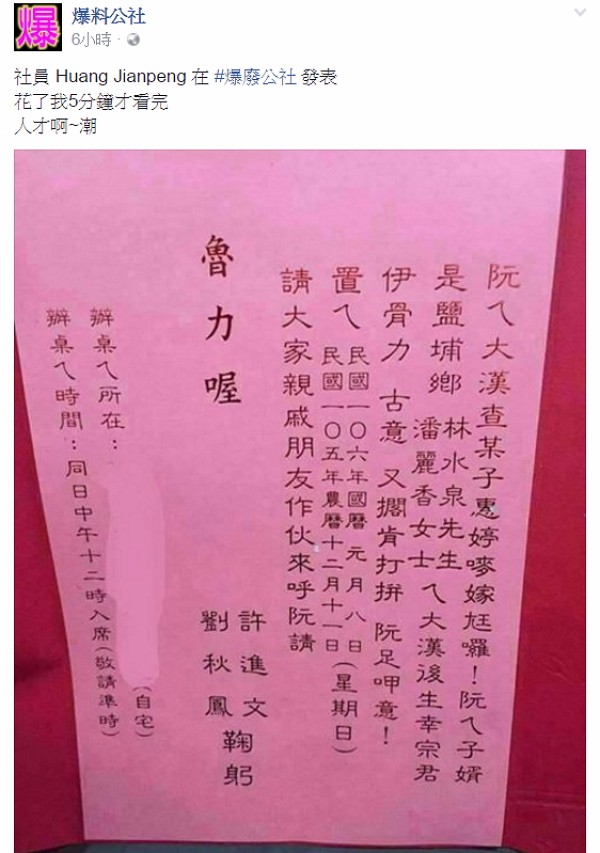 爆
爆料公社
6小時
社員 Huang Jianpeng 在 #爆廢公社 發表
花了我5分鐘才看完
人才啊~潮
阮ㄟ大漢查某子惠婷嘜嫁尪囉！阮ㄟ子婿
是鹽埔鄉 林水泉先生 潘麗香女士 ㄟ大漢後生幸宗君
伊骨力 古意 又擱肯打拚 阮足呷意！
置ㄟ 民國一〇六年國曆元月八日 民國一〇五年農曆十二月十一日 (星期日)
請大家親戚朋友作伙來呼阮請
魯力喔
許進文
劉秋鳳
鞠躬
辦桌ㄟ所在： (自宅)
辦桌ㄟ時間：同日中午十二時入席(敬請準時)